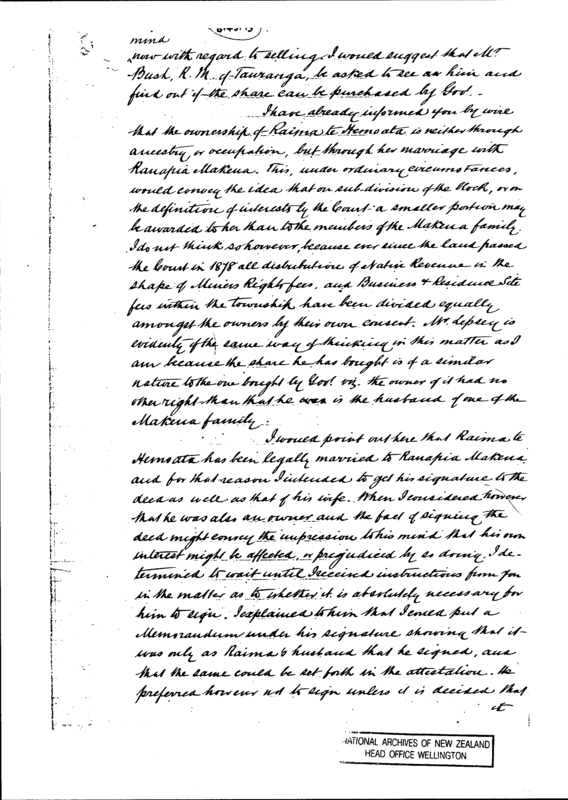 mind
now with regard to selling. I would suggest that Mr
Bush, R. M. of Tauranga, be asked to see him and
find out if the share can be purchased by Gov.-
I have already informed you by wire
that the ownership of Raima te Hemoata is neither through
ancestry or occupation, but through her marriage with
Ranapia Makena. This, under ordinary circumstances,
would convey the idea that on subdivision of the block, or on
the definition of interests by the Court a smaller portion may
be awarded to her than to the members of the Makena family.
I do not think so however, because ever since the land passed
the Court in 1878 all distribution of Native Revenue in the
shape of Miners Rights fees, and Business & Residence Site
fees within the township have been divided equally
amongst the owners by their own consent. Mr. Lipsey is
evidently of the same way of thinking in this matter as I
am because the share he has bought is of a similar
nature to the one bought by Govt. viz. the owner of it had no
other right than that he is the husband of one of the
Makena family.
I would point out here that Raima te
Hemoata has been legally married to Ranapia Makena
and for that reason I intended to get his signature to the
deed as well as that of his wife. When I considered however
that he was also an owner and the fact of signing the
deed might convey the impression to his mind that his own
interest might be affected, or prejudiced by so doing, I de-
termined to wait until I received instructions from you
in the matter as to whether it is absolutely necessary for
him to sign. I explained to him that I could put a
Memorandum under his signature showing that it
was only as Raima's husband that he signed, and
that the same could be set forth in the attestation. He
preferred however not to sign unless it is decided that
it
NATIONAL ARCHIVES OF NEW ZEALAND
HEAD OFFICE WELLINGTON